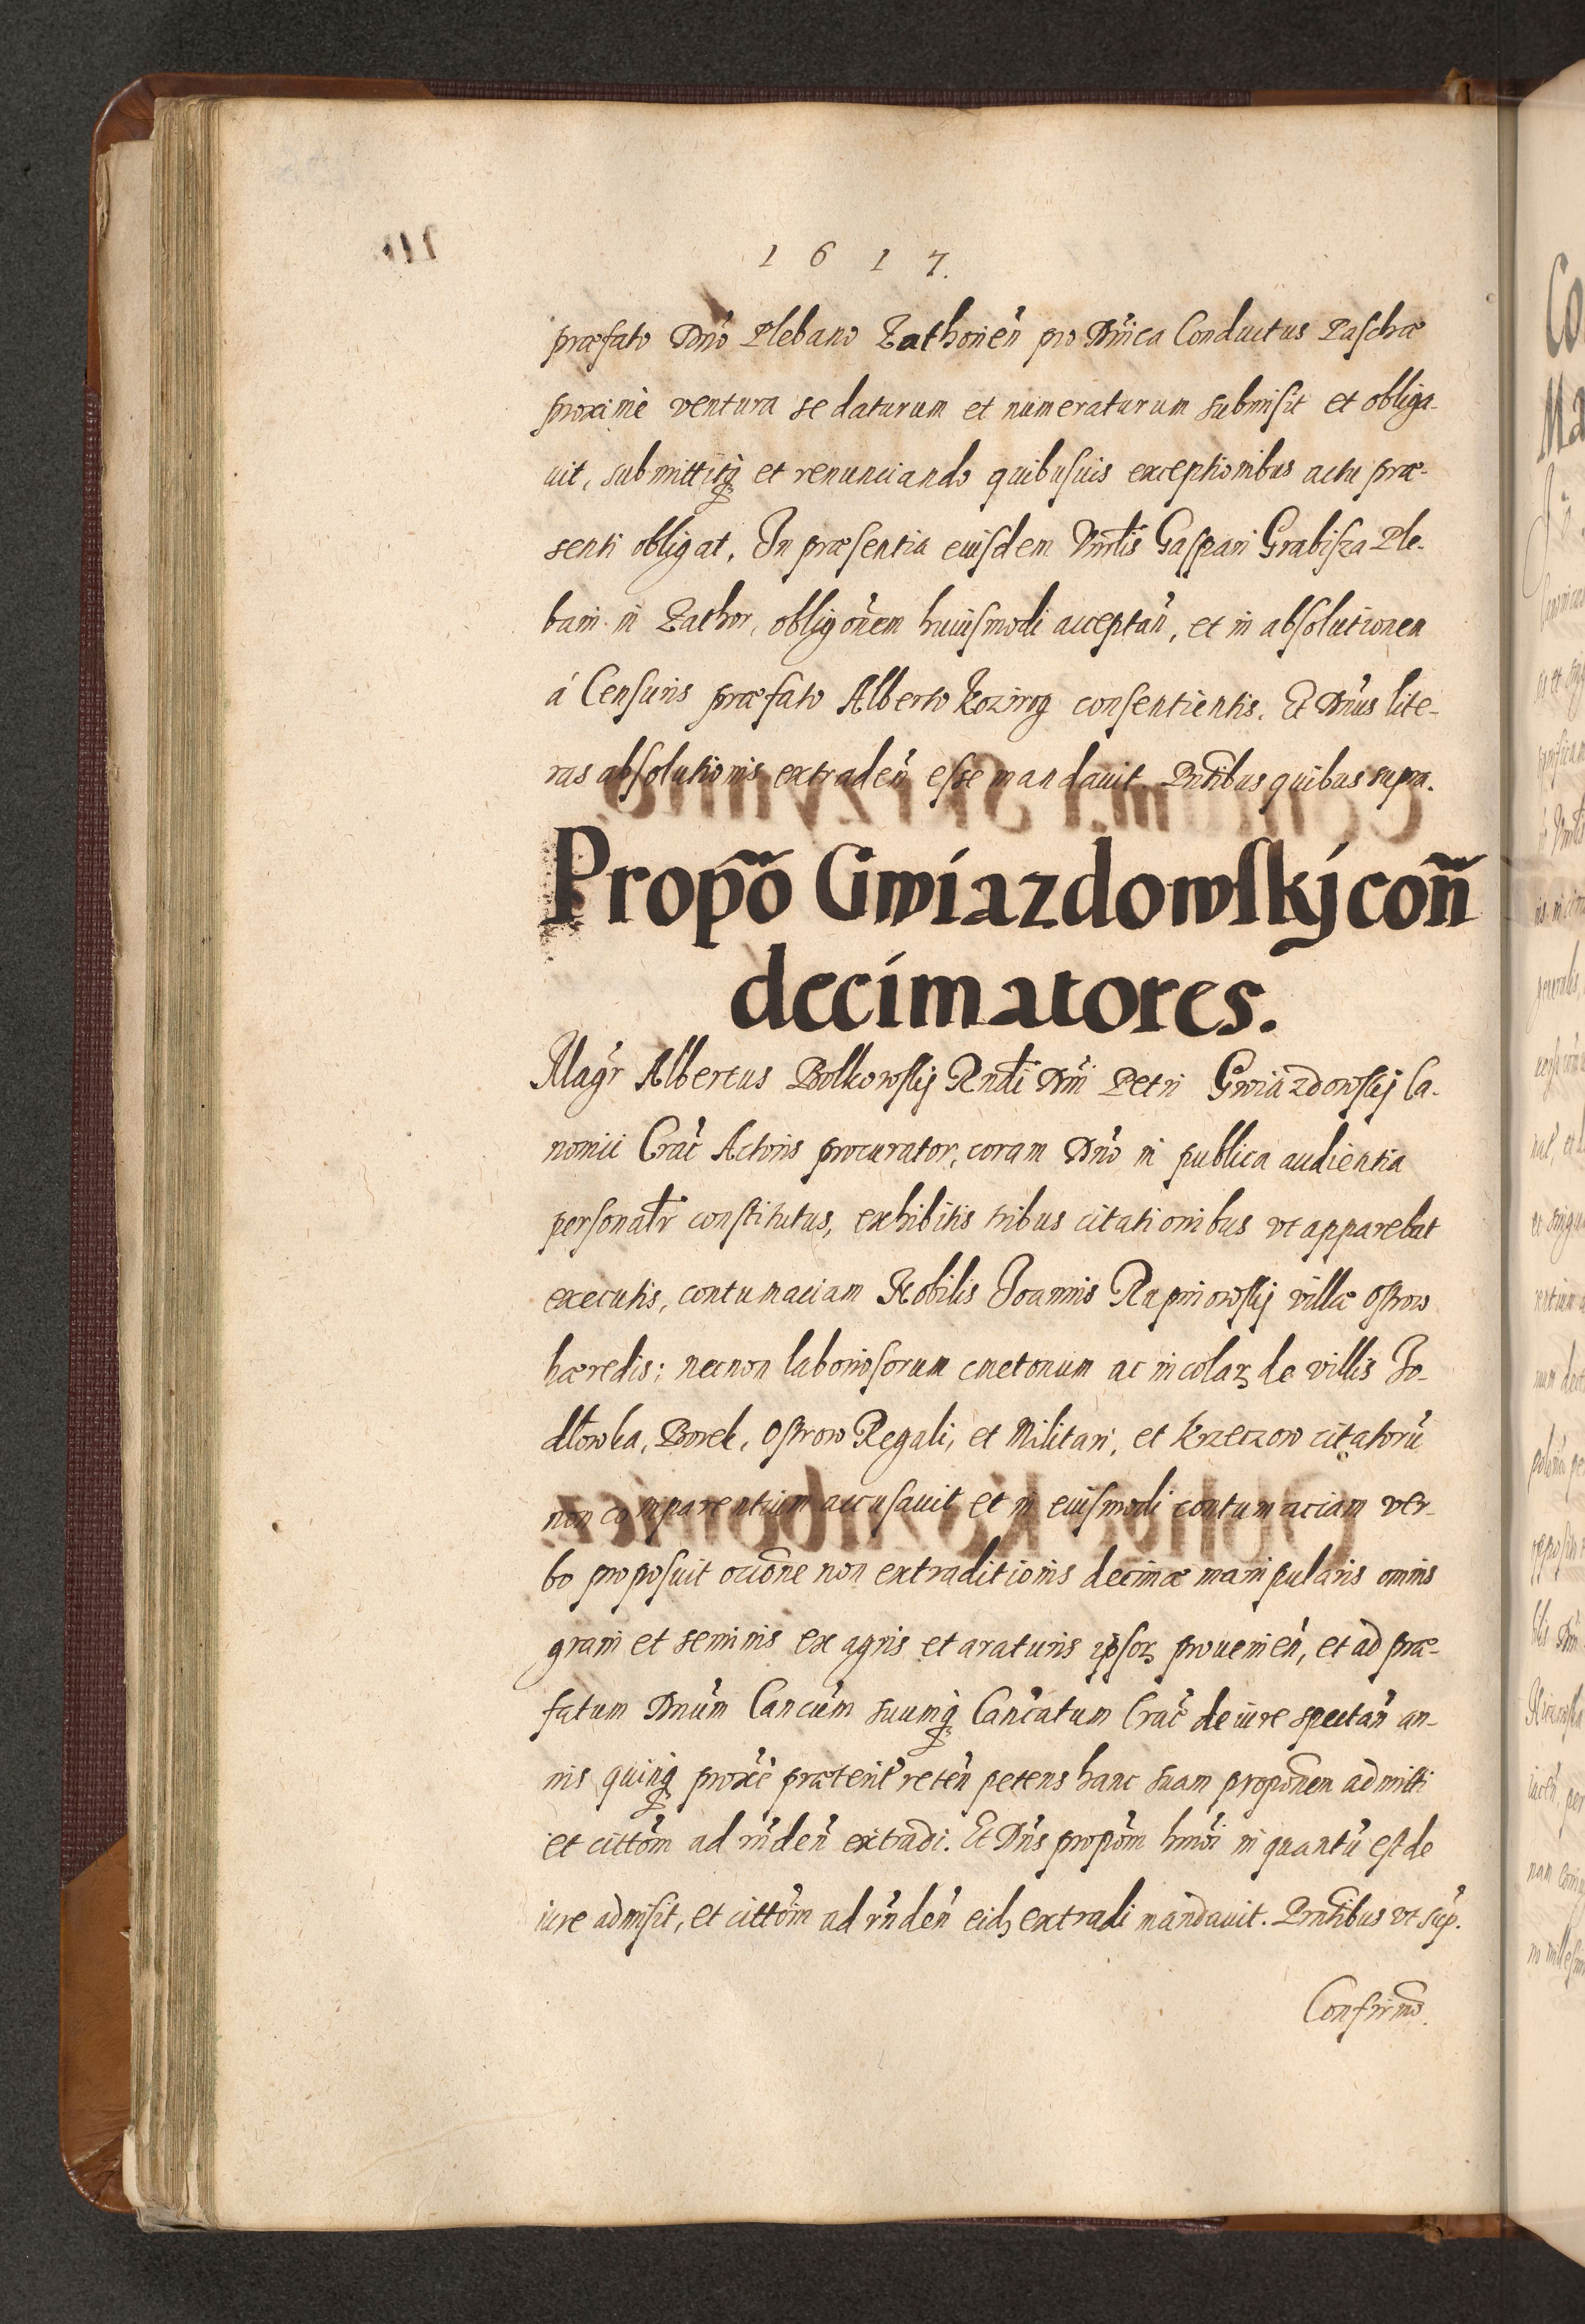 1 6 1 7.
præfato Dno Plebano Zathorień pro Dnica Conductus Paschæ
proximè ventura se daturum et numeraturum submisit et obliga-
uit, submittitq; et renunciando quibusuis exceptionibus actu præ-
senti obligat, In præsentia eiusdem Vnrlis Gaspari Grabisza Ple-
bani in Zathor, obligonem huiusmodi acceptań, et in absolutionem
á Censuris præfato Alberto Kozirog consentientis. Et Dnus lite-
ras absolutionis extradeń esse mandauit. Pntibus quibus supra.
Propõ Gwiazdowskÿ coñ
decimatores.
Magr Albertus Bolkowskij Rndi Dni Petri Gwiazdowskij Ca-
nonici Crac Actoris procurator, coram Dno in publica audientia
personalr constitutus, exhibitis tribus citationibus vt apparebat
executis, contumaciam Nobilis Joannis Rupniowskij villæ Ostrow
hæredis; necnon laboriosorum cmetonum ac incolaꝝ de villis Jo-
dlowka, Borek, Ostrow Regali, et Militari, et Krzeczow citatorũ
non comparentium accusauit et in eiusmodi contumaciam ver-
bo proposuit occõne non extraditionis decimæ manipularis omnis
grani et seminis ex agris et araturis ipsoꝝ prouenień, et ad præ-
fatum Dnum Cancum suumq; Cancatum Crac de iure spectań an-
nis quinq; proxe præterit reteń petens hanc suam proponem admitti
et cittom ad rndeń extradi. Et Dns propom hmoi in quantũ est de
iure admisit, et cittom ad rndeń eidꝫ extradi mandauit. Pntibus vt sup.
Confirmo.